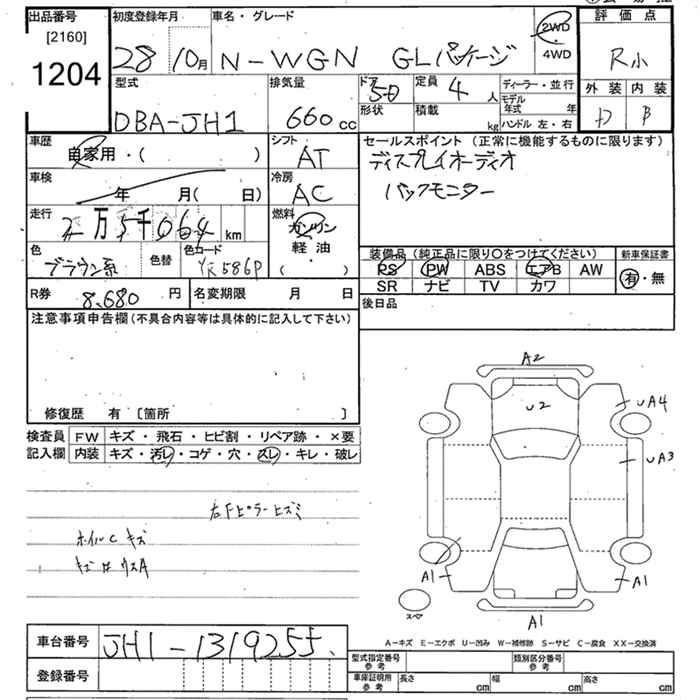 出品番号
[2160]
1204
初度登録年月
28 10月
車名・グレード
N-WGN GLパッケージ
2WD
4WD
評価点
R小
外装 内装
B
型式
DBA-JH1
排気量
660 cc
ドア
5D
形状
定員 4 人
積載 kg
ディーラー・並行
モデル年式 年
ハンドル 左・右
車歴
自家用・( )
シフト
AT
セールスポイント (正常に機能するものに限ります)
ディスプレイオーディオ
バックモニター
車検
年 月( 日)
冷房
AC
走行
2万5千064 km
燃料
ガソリン
軽油
( )
色
ブラウン系
色替
色コード
YR586P
装備品 (純正品に限り○をつけてください)
PS PW ABS エアB AW
SR ナビ TV カワ
新車保証書
有・無
R券 8,680 円
名変期限 月 日
後日品
注意事項申告欄 (不具合内容等は具体的に記入して下さい)
修復歴 有 [箇所 ]
検査員
記入欄
FW キズ・飛石・ヒビ割・リペア跡・×要
内装 キズ・汚レ・コゲ・穴・スレ・キレ・破レ
右Fピラーヒズミ
ホイルCキズ
A2
U2
UA4
UA3
A1
A1
A1
スペア
A-キズ E-エクボ U-凹み W-補修跡 S-サビ C-腐食 XX-交換済
車台番号
JH1-1319255
登録番号
型式指定番号
参考
類別区分番号
参考
車庫証明用
参考
長さ cm 幅 cm 高さ cm